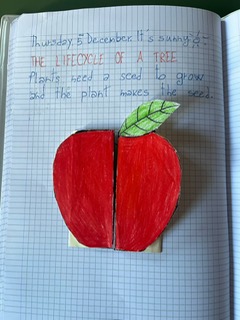 Thursday 5th December. It's sunny
THE LIFECYCLE OF A TREE
Plants need a seed to grow
and the plant makes the seed.